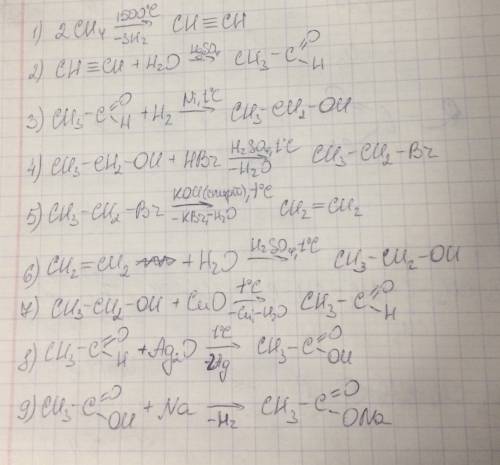 1) 2CH₄ 1500°C −3H₂ → CH≡CH
2) CH≡CH + H₂O H₂SO₄ → CH₃−C=O H
3) CH₃−C=O H + H₂ Ni, t°C → CH₃−CH₂−OH
4) CH₃−CH₂−OH + HBr H₂SO₄, t°C −H₂O → CH₃−CH₂−Br
5) CH₃−CH₂−Br KOH(спирт), t°C −KBr, −H₂O → CH₂=CH₂
6) CH₂=CH₂ + H₂O H₂SO₄, t°C → CH₃−CH₂−OH
7) CH₃−CH₂−OH + CuO t°C −Cu, −H₂O → CH₃−C=O H
8) CH₃−C=O H + Ag₂O t°C −2Ag → CH₃−C=O OH
9) CH₃−C=O OH + Na −H₂ → CH₃−C=O ONa